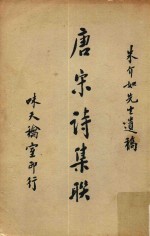 朱介如先生遺稿
唐宋詩集聯
味天檜室印行